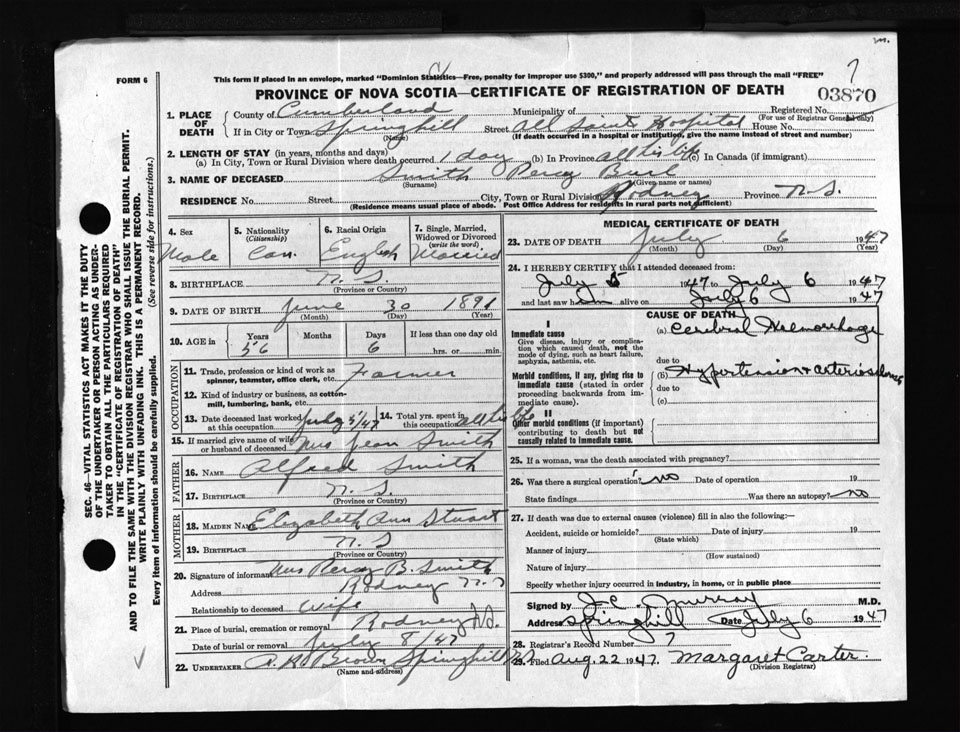 m.
7
FORM 6
This form if placed in an envelope, marked "Dominion Statistics—Free, penalty for improper use $300," and properly addressed will pass through the mail "FREE"
PROVINCE OF NOVA SCOTIA—CERTIFICATE OF REGISTRATION OF DEATH
03870
1. PLACE OF DEATH
County of Cumberland Municipality of Registered No.
(For use of Registrar General only)
If in City or Town Springhill Street All Saints Hospital House No.
(Name) (If death occurred in a hospital or institution, give the name instead of street and number)
2. LENGTH OF STAY (in years, months and days)
(a) In City, Town or Rural Division where death occurred 1 day (b) In Province all his life (c) In Canada (if immigrant)
3. NAME OF DECEASED Smith Percy Burl
(Surname) (Given name or names)
RESIDENCE No. Street City, Town or Rural Division Rodney Province N.S.
(Residence means usual place of abode. Post Office Address for residents in rural parts not sufficient)
4. Sex Male
5. Nationality (Citizenship) Can.
6. Racial Origin English
7. Single, Married, Widowed or Divorced (write the word) Married
8. BIRTHPLACE N.S.
(Province or Country)
9. DATE OF BIRTH June 30 1891
(Month) (Day) (Year)
10. AGE in Years Months Days If less than one day old
56 6 hrs. or min.
OCCUPATION
11. Trade, profession or kind of work as spinner, teamster, office clerk, etc. Farmer
12. Kind of industry or business, as cotton-mill, lumbering, bank, etc.
13. Date deceased last worked at this occupation July 5/47
14. Total yrs. spent in this occupation all his life
15. If married give name of wife or husband of deceased Mrs Jean Smith
FATHER
16. NAME Alfred Smith
17. BIRTHPLACE N.S.
(Province or Country)
MOTHER
18. MAIDEN NAME Elizabeth Ann Stuart
19. BIRTHPLACE N.S
(Province or Country)
20. Signature of informant Mrs Percy B. Smith
Address Rodney N.S
Relationship to deceased Wife
21. Place of burial, cremation or removal Rodney N.S.
Date of burial or removal July 8/47
22. UNDERTAKER A.R. Brown Springhill N.S
(Name and address)
MEDICAL CERTIFICATE OF DEATH
23. DATE OF DEATH July 6 1947
(Month) (Day)
24. I HEREBY CERTIFY that I attended deceased from
July 5 1947 to July 6 1947
and last saw him alive on July 6 1947
CAUSE OF DEATH
I
Immediate cause (a) Cerebral Haemorrhage
Give disease, injury or complication which caused death, not the mode of dying, such as heart failure, asphyxia, asthenia, etc.
due to
Morbid conditions, if any, giving rise to immediate cause (stated in order proceeding backwards from immediate cause).
(b) Hypertension + arteriosclerosis
due to
(c)
II
Other morbid conditions (if important) contributing to death but not causally related to immediate cause.
25. If a woman, was the death associated with pregnancy?
26. Was there a surgical operation? No Date of operation 19
State findings Was there an autopsy? no
27. If death was due to external causes (violence) fill in also the following:—
Accident, suicide or homicide? Date of injury 19
(State which)
Manner of injury
(How sustained)
Nature of injury
Specify whether injury occurred in industry, in home, or in public place
Signed by J.C. Murray M.D.
Address Springhill Date July 6 1947
28. Registrar's Record Number 7
29. Filed Aug. 22 1947. Margaret Carter.
(Division Registrar)
SEC. 46—VITAL STATISTICS ACT MAKES IT THE DUTY
OF THE UNDERTAKER OR PERSON ACTING AS UNDERTAKER
TO OBTAIN ALL THE PARTICULARS REQUIRED
IN THE "CERTIFICATE OF REGISTRATION OF DEATH"
AND TO FILE THE SAME WITH THE DIVISION REGISTRAR WHO SHALL ISSUE THE BURIAL PERMIT.
WRITE PLAINLY WITH UNFADING INK. THIS IS A PERMANENT RECORD.
Every item of information should be carefully supplied. (See reverse side for instructions.)